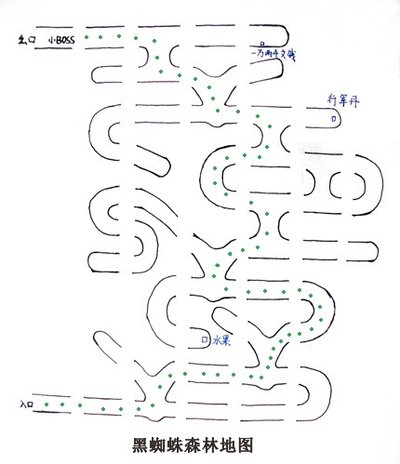 出口 小BOSS
一万两千文钱
行军丹
水果
入口
黑蜘蛛森林地图